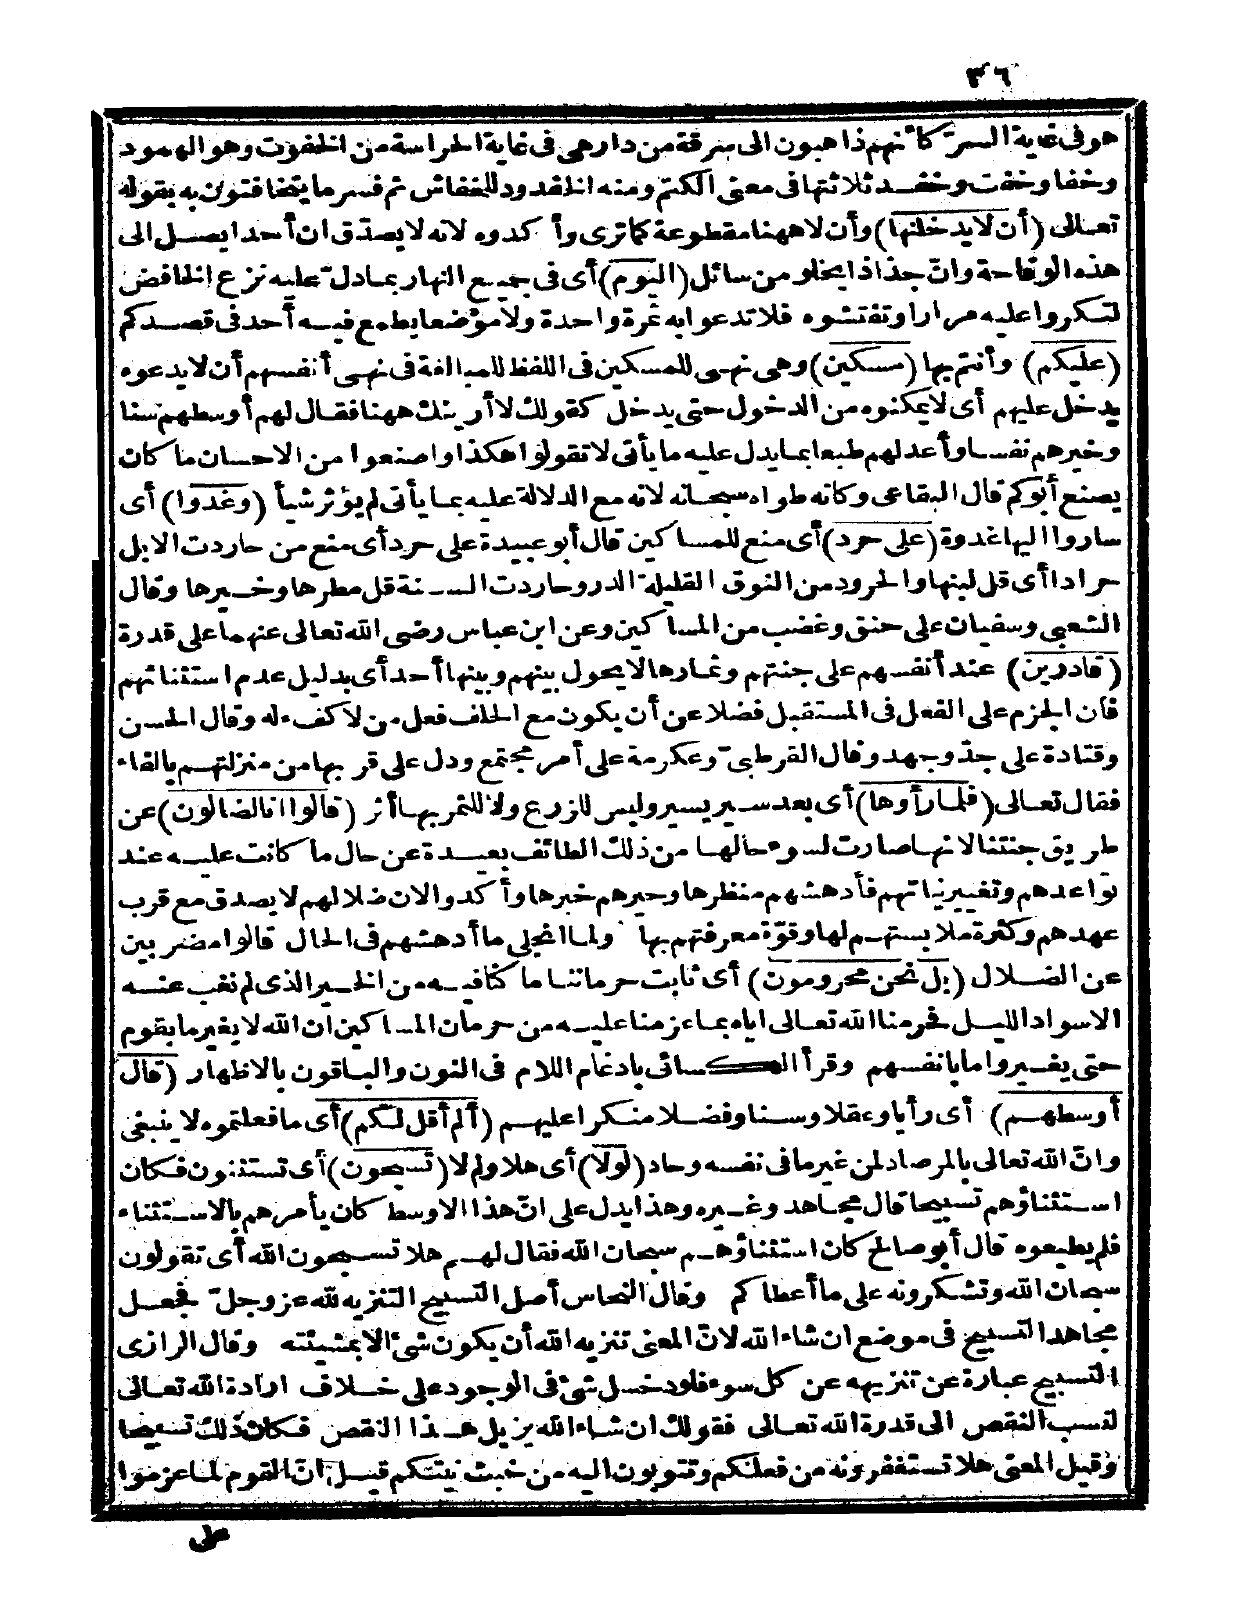 ٣٦
هو فى غاية السرّ كأنهم ذاهبون الى سرقة من دار هى فى غاية الحراسة من الخفوت وهو الهمود
وخفا وخفت وخفد ثلاثتها فى معنى الكتم ومنه الخفدود للخفاش ثم فسر ما يتخافتون به بقوله
تعالى (أن لا يدخلنها) وأن لا ههنا مقطوعة كما ترى وأكدوه لانه لا يصدّق ان أحدا يصل الى
هذه الوقاحة وانّ جذاذا يخلو من سائل (اليوم) أى فى جميع النهار بما دلّ عليه نزع الخافض
لتكروا عليه مرارا وتفتشوه فلا تدعوا به ثمرة واحدة ولا موضعا يطمع فيه أحد فى قصدكم
(عليكم) وأنتم بها (مسكين) وهى نهى للمسكين فى اللفظ للمبالغة فى نهى أنفسهم أن لا يدعوه
يدخل عليهم أى لا يمكنوه من الدخول حتى يدخل كقولك لا أرينك ههنا فقال لهم أوسطهم سنا
وخيرهم نفسا وأعدلهم طبعا بما يدل عليه ما يأتى لا تقولوا هكذا واصنعوا من الاحسان ما كان
يصنع أبوكم قال البقاعى وكانه طواه سبحانه لانه مع الدلالة عليه بما يأتى لم يؤثر شيأ (وغدوا) أى
ساروا اليها غدوة (على حرد) أى منع للمساكين قال أبو عبيدة على حرد أى منع من حاردت الابل
حرادا أى قل لبنها والحرود من النوق القليلة الدر وحاردت السنة قل مطرها وخيرها وقال
الشعبى وسفيان على حنق وغضب من المساكين وعن ابن عباس رضى الله تعالى عنهما على قدرة
(قادرين) عند أنفسهم على جنتهم وثمارها لا يحول بينهم وبينها أحد أى بدليل عدم استثنائهم
فان الجزم على الفعل فى المستقبل فضلا عن أن يكون مع الحلف فعل من لا كفء له وقال الحسن
وقتادة على جدّ وجهد وقال القرطبىّ وعكرمة على أمر مجتمع ودل على قربها من منزلتهم بالفاء
فقال تعالى (فلما رأوها) أى بعد سير يسير وليس للزرع ولا للثمر بها أثر (قالوا انا لضالون) عن
طريق جنتنا لانها صارت لسوء حالها من ذلك الطائف بعيدة عن حال ما كانت عليه عند
تواعدهم وتغيير نياتهم فأدهشهم منظرها وحيرهم خبرها وأكدوا لان ضلالهم لا يصدق مع قرب
عهدهم وكثرة ملابستهم لها وقوّة معرفتهم بها ولما انجلى ما أدهشهم فى الحال قالوا مضربين
عن الضلال (بل نحن محرومون) أى ثابت حرماننا ما كنا فيه من الخير الذى لم نغب عنه
الا سواد الليل فحرمنا الله تعالى اياه بما عزمنا عليه من حرمان المساكين ان الله لا يغير ما بقوم
حتى يغيروا ما بانفسهم وقرأ الكسائى بادغام اللام فى النون والباقون بالاظهار (قال
أوسطهم) أى رأيا وعقلا وسنا وفضلا منكرا عليهم (ألم أقل لكم) أى ما فعلتموه لا ينبغى
وانّ الله تعالى بالمرصاد لمن غير ما فى نفسه وحاد (لولا) أى هلا ولم لا (تسبحون) أى تستثنون فكان
استثناؤهم تسبيحا قال مجاهد وغيره وهذا يدل على انّ هذا الاوسط كان يأمرهم بالاستثناء
فلم يطيعوه قال أبو صالح كان استثناؤهم سبحان الله فقال لهم هلا تسبحون الله أى تقولون
سبحان الله وتشكرونه على ما أعطاكم وقال النحاس أصل التسبيح التنزيه لله عز وجلّ فجعل
مجاهد التسبيح فى موضع ان شاء الله لانّ المعنى تنزيه الله أن يكون شئ الا بمشيئته وقال الرازى
التسبيح عبارة عن تنزيهه عن كل سوء فلو دخل شئ فى الوجود على خلاف ارادة الله تعالى
لنسب النقص الى قدرة الله تعالى فقولك ان شاء الله يزيل هذا النقص فكان ذلك تسبيحا
وقيل المعنى هلا تستغفرونه من فعلتكم وتتوبون اليه من خبث نيتكم قيل انّ القوم لما عزموا
على